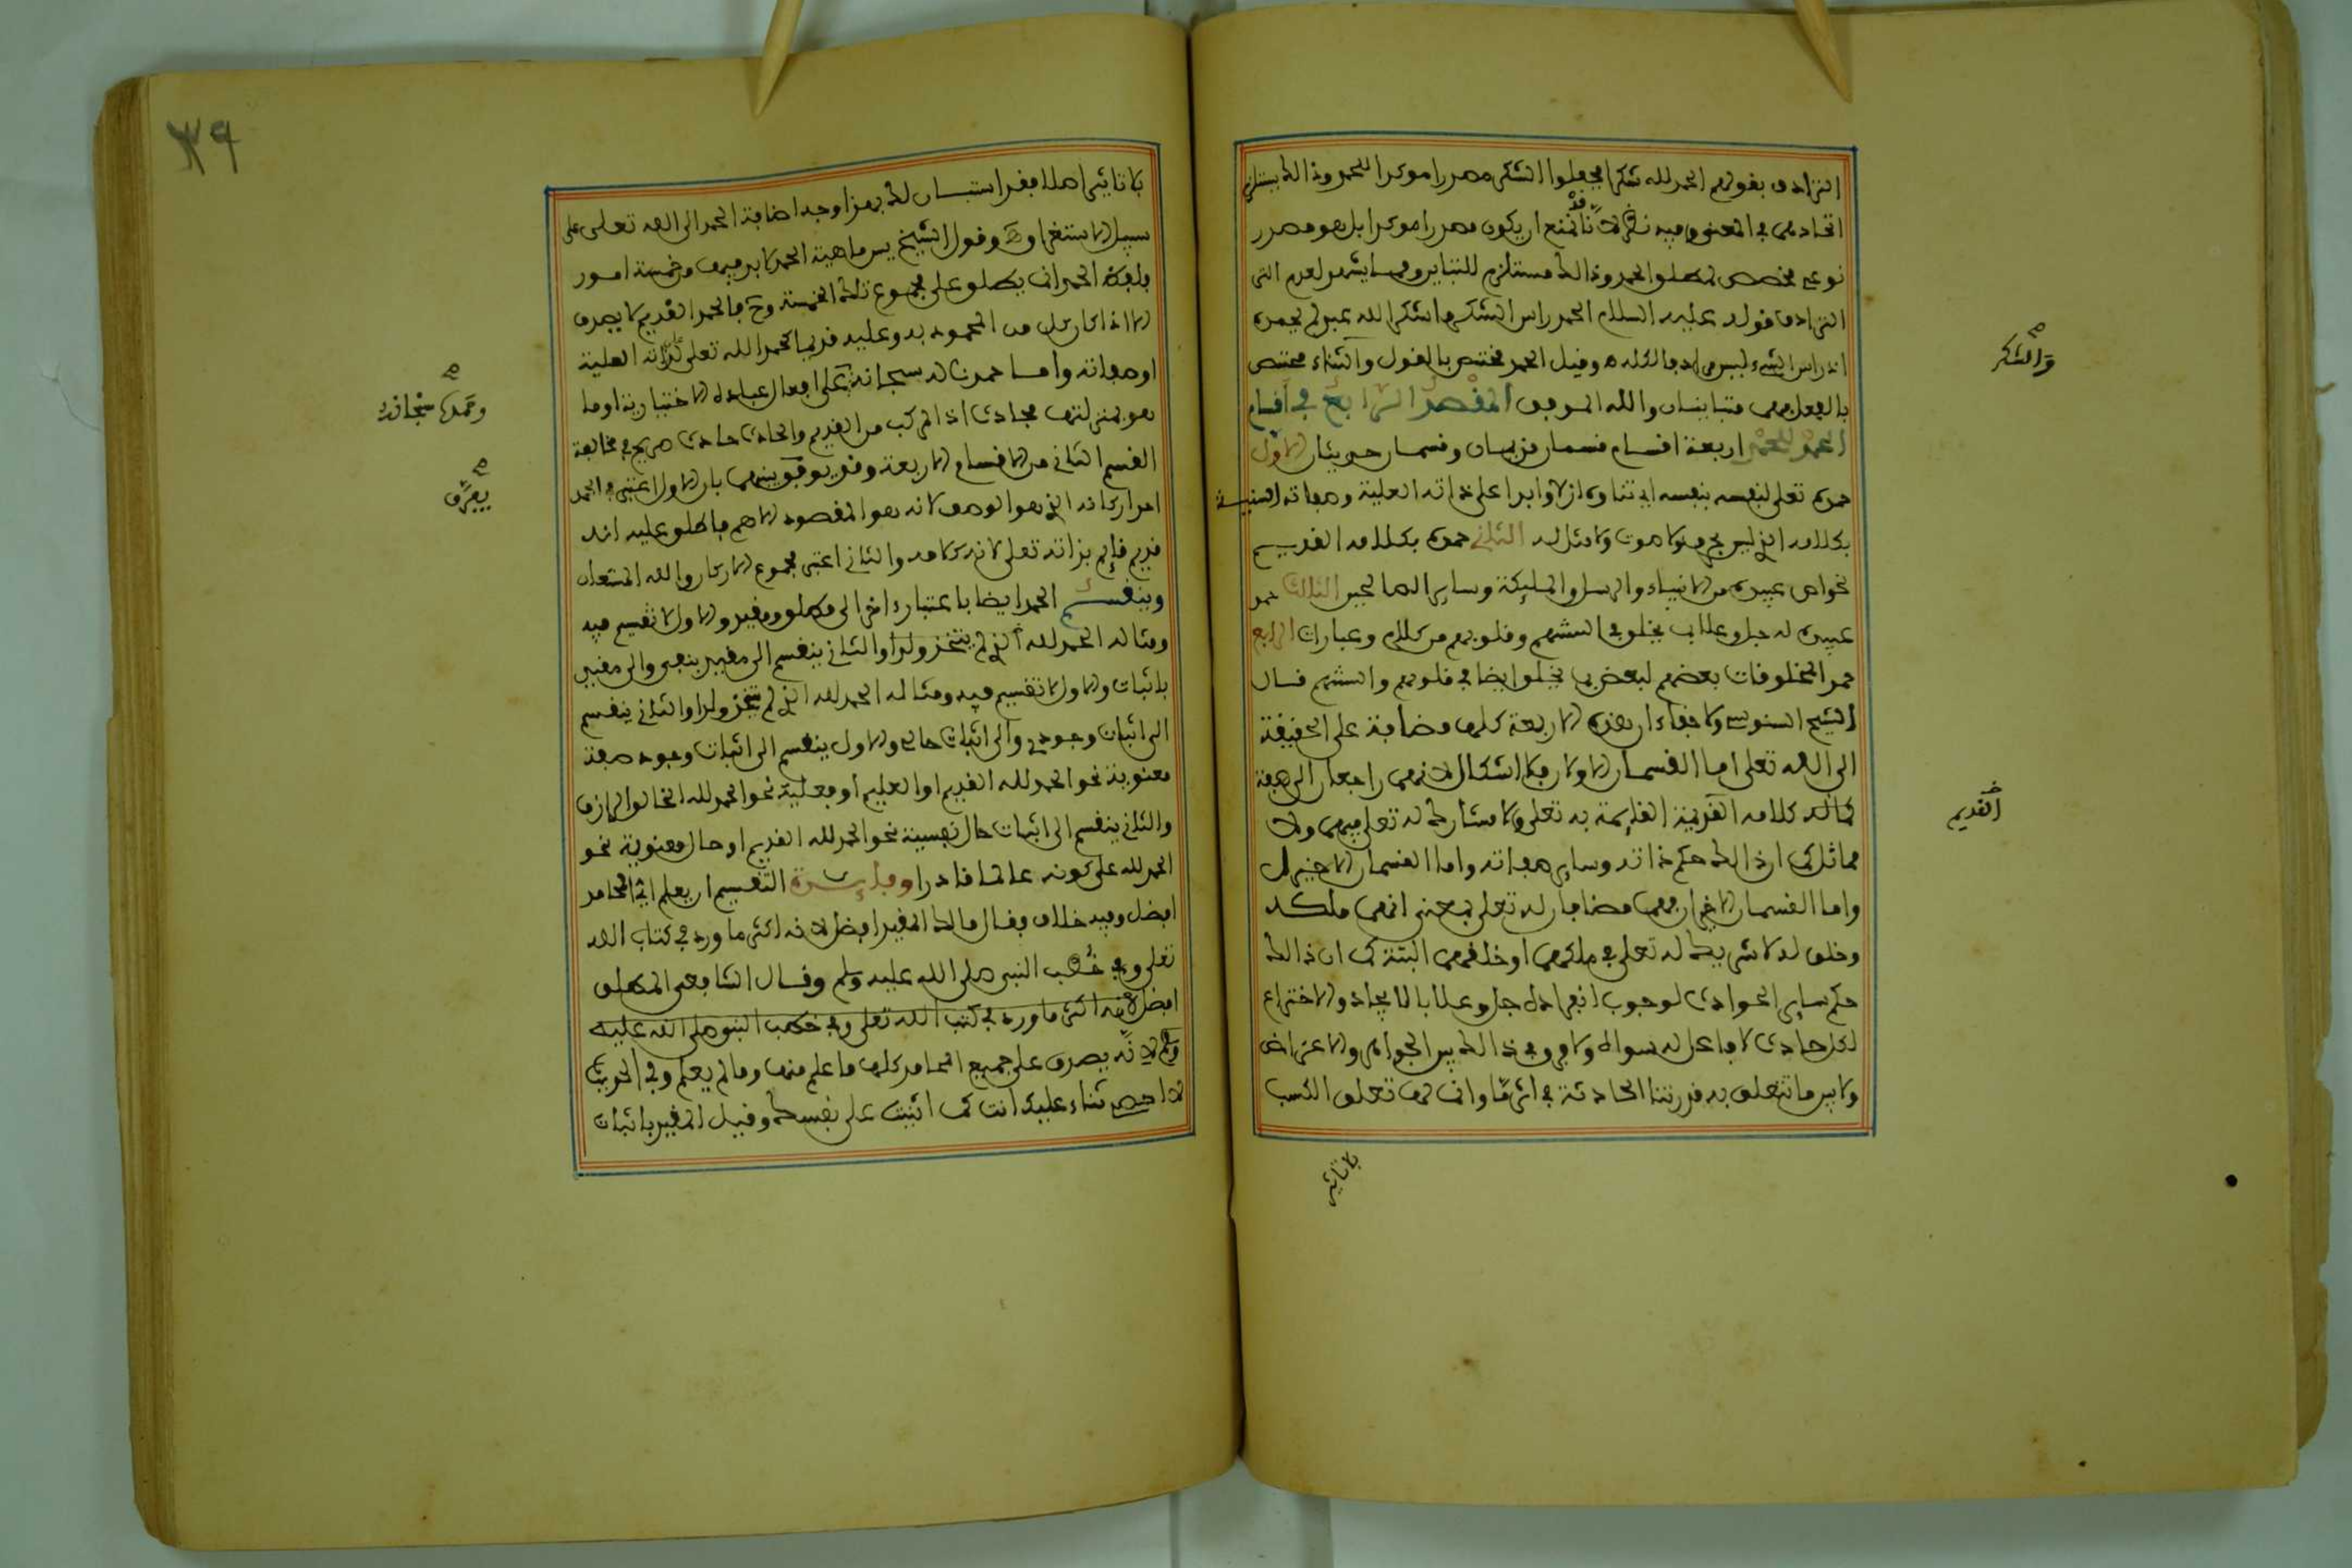 الترادف بقولهم الحمد لله شكرا فجعلوا الشكر مصدرا موكدا للحمد وذالك يستلزم
اتحادهما في المعنى وفيه نظر لانا قد نمنع ان يكون مصدرا موكدا بل هو مصدر
نوعي مخصص لمطلق الحمد وذالك مستلزم للتغاير ومما يشعر لعدم
الترادف قوله عليه السلام الحمد راس الشكر ما شكر الله عبد لم يحمده
اذ راس الشيء ليس مرادفا لكله وقيل الحمد مختص بالقول والثناء مختص
بالفعل فهما متباينان والله الموفق المقصد الرابع في أقسام
الحمد للحمد اربعة اقسام قسمان قديمان وقسمان حديثان الاول
حمده تعلى لنفسه بنفسه اي ثناوه ازلا وابدا على ذاته العلية وصفاته السنية
بكلامه الذي ليس بحرف ولا صوت ولا مثل له الثاني حمده بكلامه القديم
لخواص عبيده من الانبياء والرسل والمليكة وساير الصالحين الثالث حمد
عبيده له جل وعلا بما يخلق في السنتهم وقلوبهم من كلام وعبارات الرابع
حمد المخلوقات بعضهم لبعض بما يخلق ايضا في قلوبهم والسنتهم قال
الشيخ السنوسي ولا خفاء ان هذه الاربعة كلها مضافة على الحقيقة
الى الله تعلى اما القسمان الاولان فلا اشكال لانهما راجعان الى صفة
كلامه القديمة القايمة به تعلى ولا مشارك له تعلى فيهما ولا
مماثل كما ان ذالك حكم ذاته وساير صفاته واما القسمان الاخيران
واما القسمان الاخيران فهما مضافان له تعلى بمعنى انهما ملكه
وخلق له لا شريك له تعلى في ملكهما او خلقهما البتة كما ان ذالك
حكم ساير الحوادث لوجوب انفراده جل وعلا بالايجاد والاختراع
لكل حادث لا فاعل له سواه ولا فرق في ذالك بين الجواهر والاعراض
ولا بين ما تتعلق به قدرتنا الحادثة في اثر ما وانما لها تعلق الكسب
والشكر
القديم
لا تاثير
٣٩
لا تاثير اصلا فقد استبان لك بهذا وجه اضافة الحمد الى الله تعلى على
سبيل الاستغراق وقول الشيخ يس ماهية الحمد لا بد فيها من خمسة امور
فلفظ الحمد انما يطلق على مجموع تلك الخمسة وح فالحمد القديم لا يصدق
الا اذا كان كل من المحمود به وعليه قديما كحمد الله تعلى على ذاته العلية
او صفاته واما حمده له سبحانه على افعال عباده الاختيارية او ما
هو بمنزلتها فحادث اذ المركب من القديم والحادث حادث صريح في مخالفة
القسم الثاني من الاقسام الاربعة وقد يوفق بينهما بان الاول اعتبر في الحمد
احد اركانه الذي هو الوصف لانه هو المقصود الاهم فاطلق عليه انه
قديم قايم بذاته تعلى لانه كلامه والثاني اعتبر مجموع الاركان والله المستعان
وينقسم الحمد ايضا باعتبار اخر الى مطلق ومقيد والاول لا تقسيم فيه
ومثاله الحمد لله الذي لم يتخذ ولدا والثاني ينقسم الى مقيد بنفي والى مقيد
باثبات والاول لا تقسيم فيه ومثاله الحمد لله الذي لم يتخذ ولدا والثاني ينقسم
الى اثبات وجودي والى اثبات حالي والاول ينقسم الى اثبات وجود صفة
معنوية نحو الحمد لله القديم او العليم او فعلية نحو الحمد لله الخالق الرازق
والثاني ينقسم الى اثبات حال نفسية نحو الحمد لله القديم او حال معنوية نحو
الحمد لله على كونه عالما قادرا وفايدة التقسيم ان يعلم اي المحامد
افضل وفيه خلاف فقال مالك المقيد افضل لانه اكثر ما ورد في كتاب الله
تعلى وفي خطب النبي صلى الله عليه وسلم وقال الشافعي المطلق
افضل لانه اكثر ما ورد في كتب الله تعلى وفي خطب النبي صلى الله عليه
وسلم لانه يصدق على جميع المحامد كلها ما علم منها وما لم يعلم وفي الحديث
لا احصي ثناء عليك انت كما اثنيت على نفسك وقيل المقيد باثبات
وحمده سبحانه
يصدق